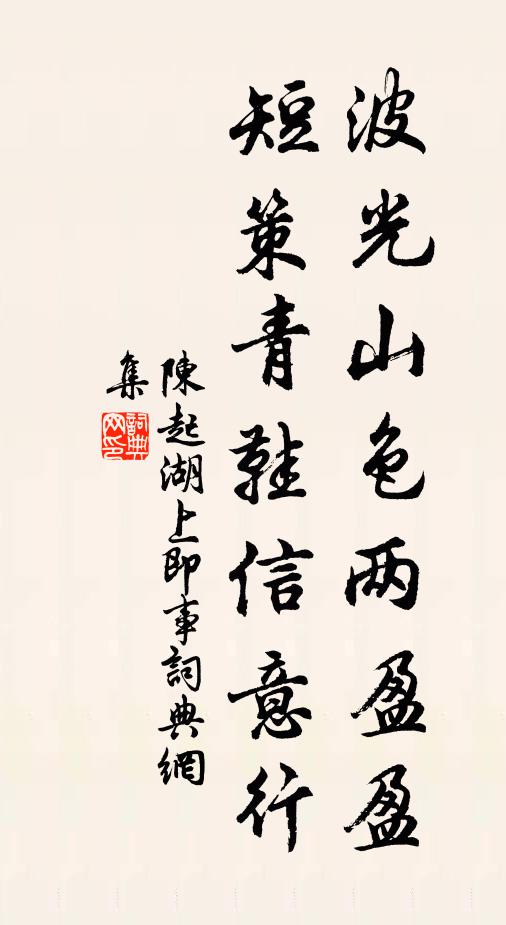 波光山色两盈盈
短策青鞋信意行
陳起湖上即事詞典網
集
詞典网印